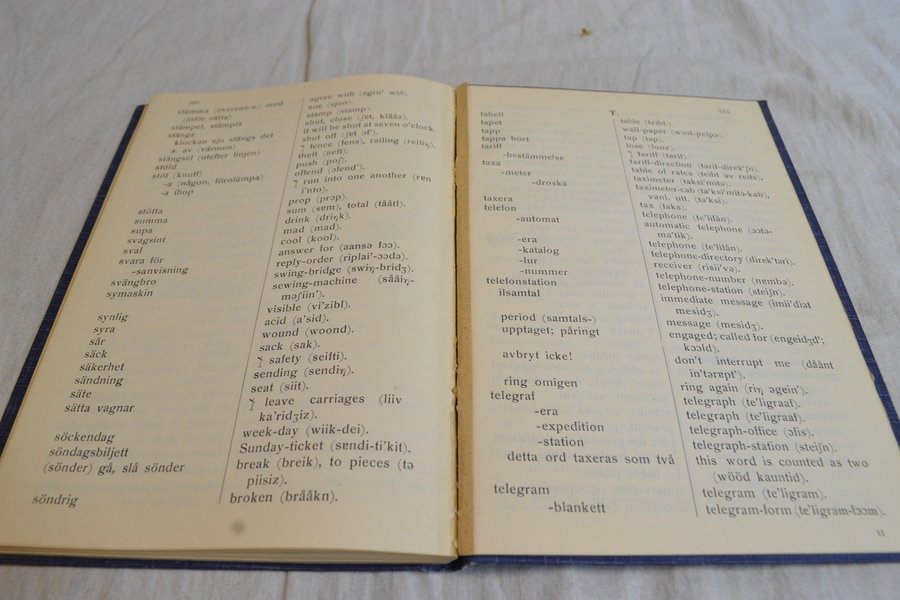 160
stämma (överens-s.) med agree with (əgrii' wið).
(inför rätta) sue (sjoo).
stämpel, stämpla stamp (stamp).
stänga shut, close (ʃɐt, klååz).
klockan sju stängs det it will be shut at seven o'clock.
s. av (värmen) shut off (ʃɐt ɔf').
stängsel (utefter linjen) fence (fens), railing (reiliŋ).
stöld theft (θeft).
stöt (knuff) push (poʃ).
-a (någon, förolämpa) offend (əfend').
-a ihop run into one another (rɐn
i'nto).
stötta prop (prɔp).
summa sum (sɐm), total (tååtl).
supa drink (driŋk).
svagsint mad (mad).
sval cool (kool).
svara för answer for (aansə fɔɔ).
-sanvisning reply-order (riplai'-ɔɔdə).
svängbro swing-bridge (swiŋ-bridʒ).
symaskin sewing-machine (sååiŋ-
məʃiin').
synlig visible (vi'zibl).
syra acid (a'sid).
sår wound (woond).
säck sack (sak).
säkerhet safety (seifti).
sändning sending (sendiŋ).
säte seat (siit).
sätta vagnar leave carriages (liiv
ka'ridʒiz).
söckendag week-day (wiik-dei).
söndagsbiljett Sunday-ticket (sɐndi-ti'kit).
(sönder) gå, slå sönder break (breik), to pieces (tə
piisiz).
söndrig broken (brååkn).
161
T.
tabell table (teibl).
tapet wall-paper (wɔɔl-peipə).
tapp tap (tap).
tappa bort lose (looz).
tariff tariff (tarif).
-bestämmelse tariff-direction (tarif-direk'ʃn).
taxa table of rates (teibl əv reits).
-meter taximeter (taksi'mitə).
-droska taximeter-cab (ta'ksi'mitə-kab),
vanl. utt. (ta'ksi).
taxera tax (taks).
telefon telephone (te'lifån).
-automat automatic telephone (ɔɔtə-
ma'tik).
-era telephone (te'lifån).
-katalog telephone-directory (direk'təri).
-lur receiver (risii'və).
-nummer telephone-number (nɐmbə).
telefonstation telephone-station (steiʃn).
ilsamtal immediate message (imii'diət
mesidʒ).
period (samtals-) message (mesidʒ).
upptaget; påringt engaged; called for (engeidʒd';
kɔɔld).
avbryt icke! don't interrupt me (dåånt
in'tərɐpt').
ring omigen ring again (riŋ əgein').
telegraf telegraph (te'ligraaf).
-era telegraph (te'ligraaf).
-expedition telegraph-office (ɔfis).
-station telegraph-station (steiʃn).
detta ord taxeras som två this word is counted as two
(wööd kauntid).
telegram telegram (te'ligram).
-blankett telegram-form (te'ligram-fɔɔm).
11